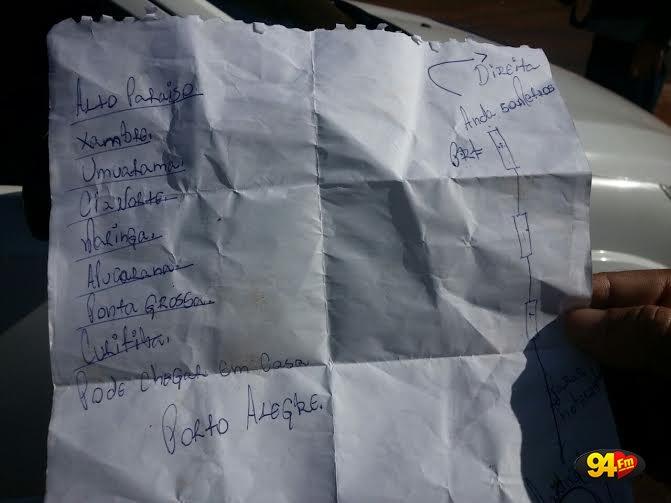 Alto Paraiso
Xambre.
Umuarama.
Cianorte.
Maringa.
Apucarana.
Ponta Grossa.
Curitiba.
Pode Chegar em Casa
Porto Alegre.
Direita
Anda 50 Metros
94 Fm